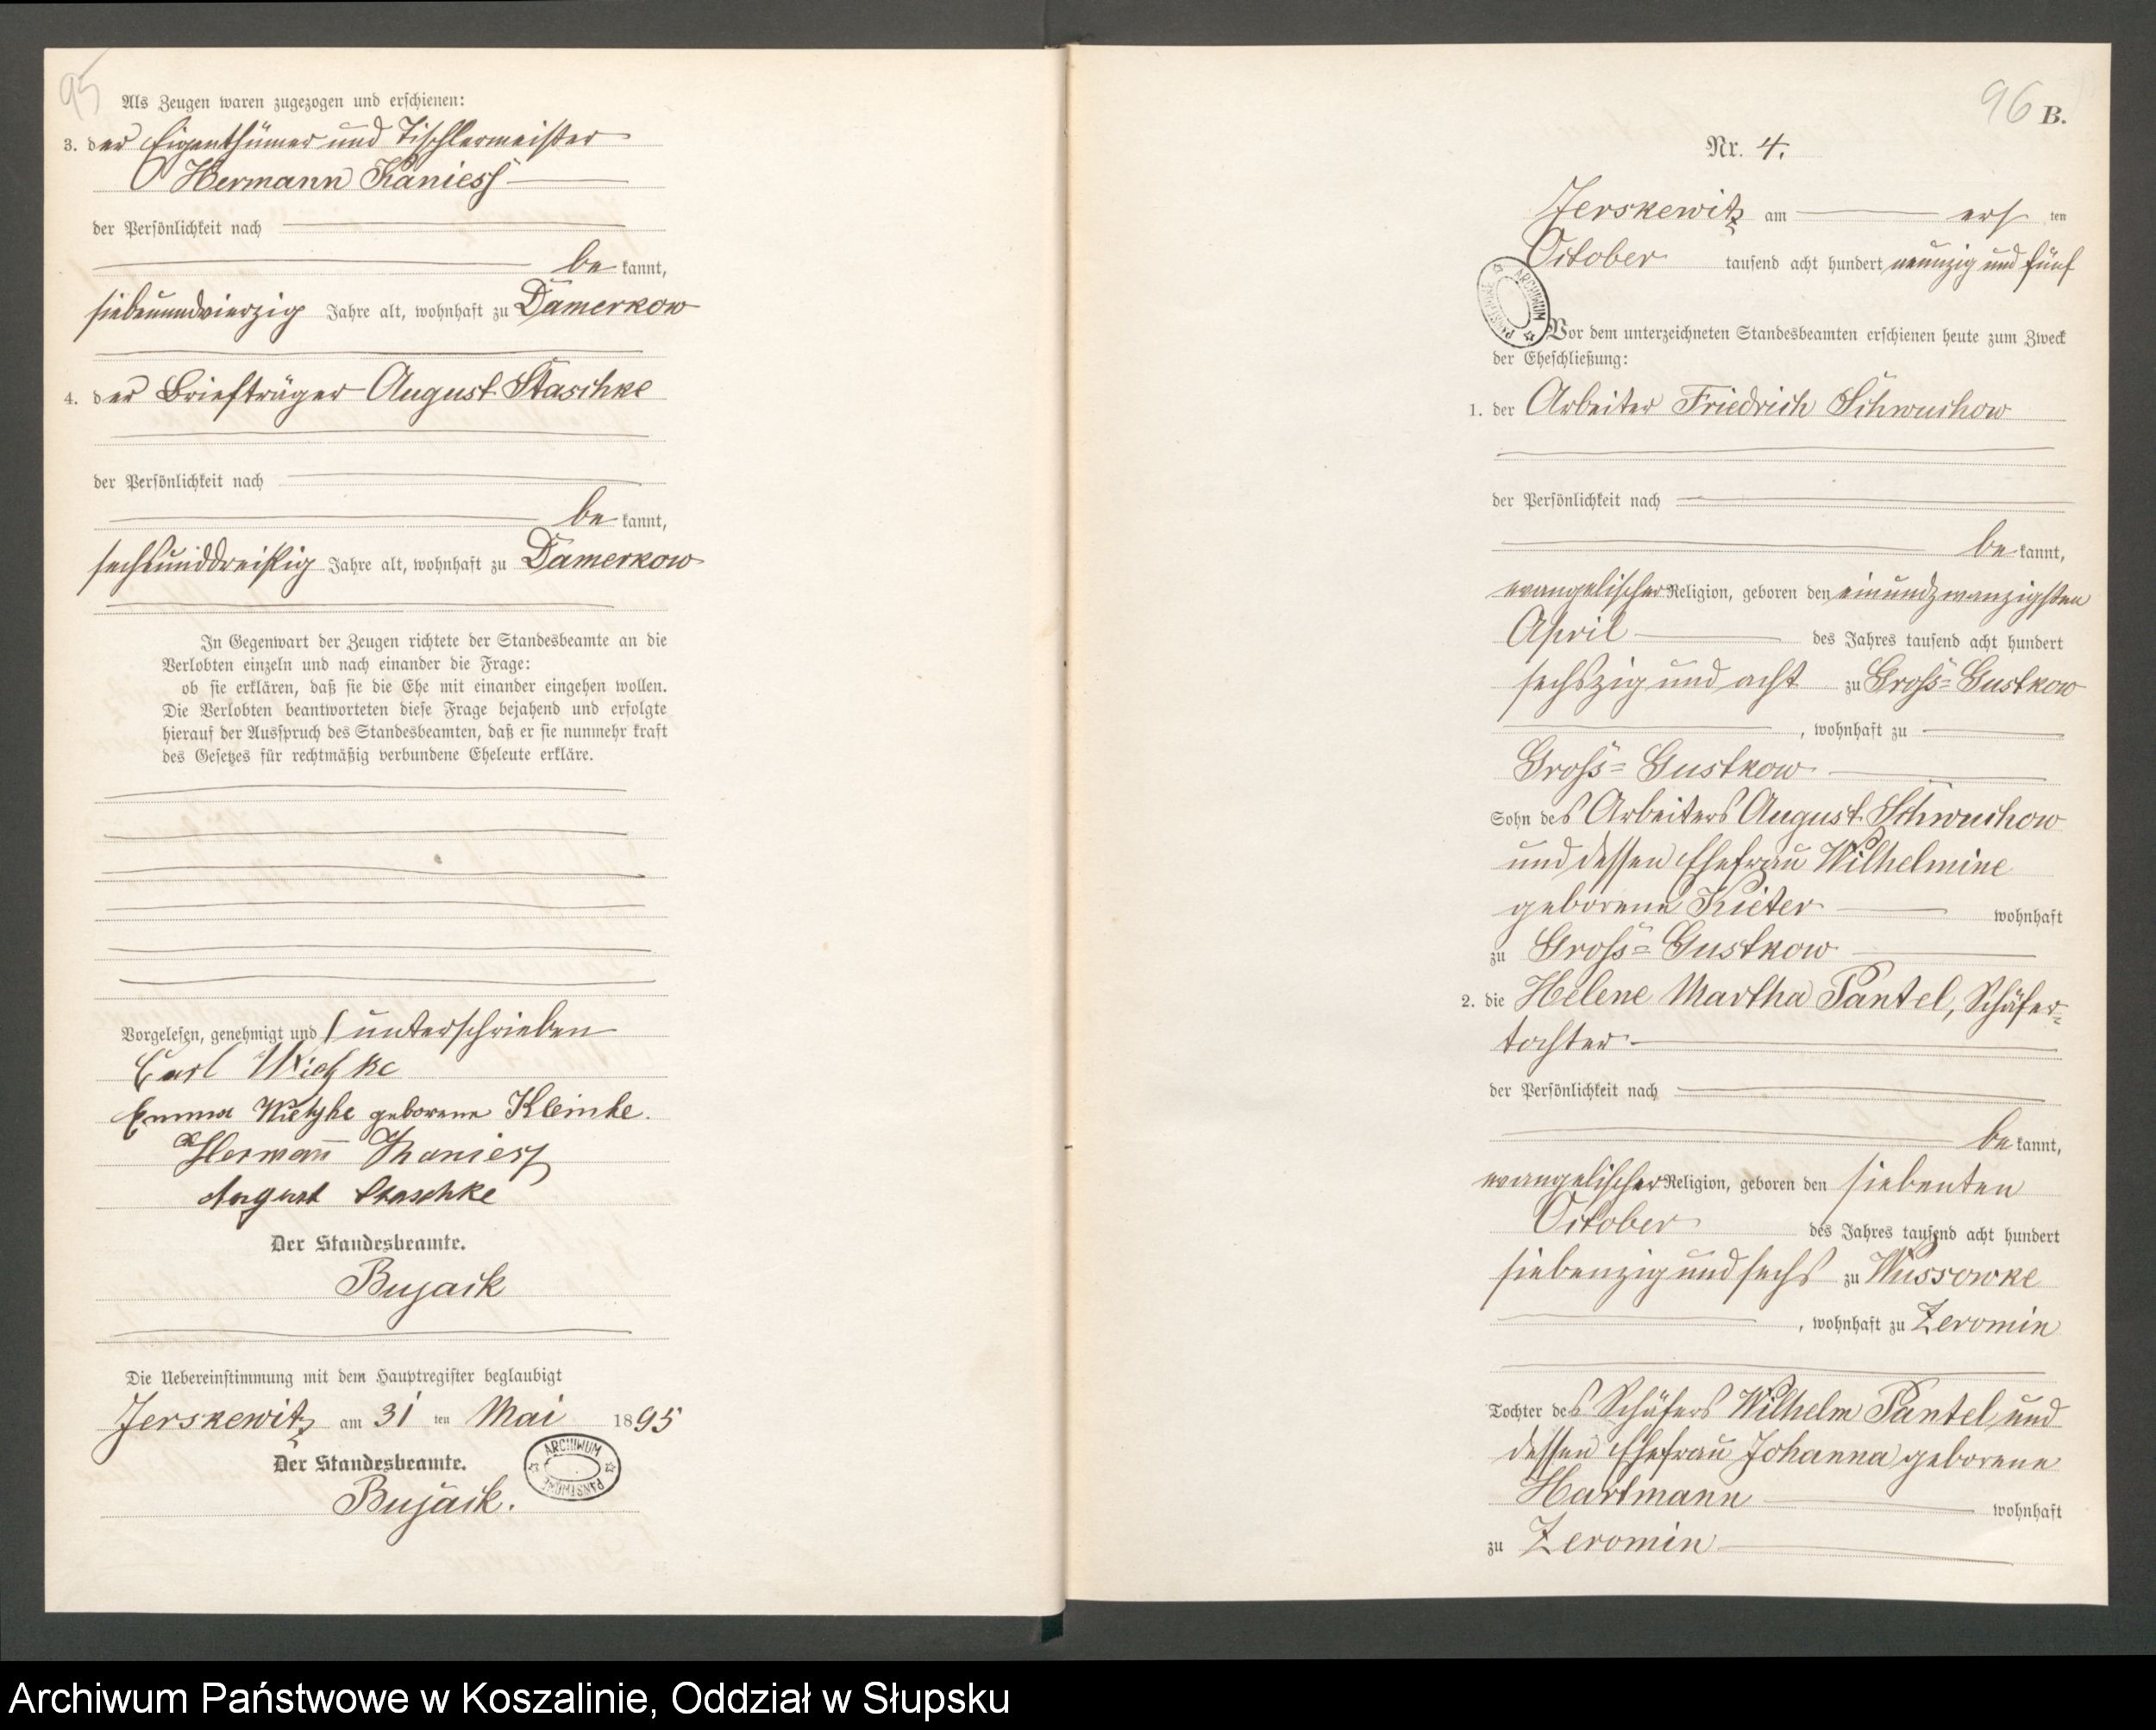 95
Als Zeugen waren zugezogen und erschienen:
3. der Eigenthümer und Tischlermeister
Hermann Kaniess
der Persönlichkeit nach
be kannt,
siebenundvierzig Jahre alt, wohnhaft zu Damerkow
4. der Briefträger August Staschke
der Persönlichkeit nach
be kannt,
sechsunddreißig Jahre alt, wohnhaft zu Damerkow
In Gegenwart der Zeugen richtete der Standesbeamte an die
Verlobten einzeln und nach einander die Frage:
ob sie erklären, daß sie die Ehe mit einander eingehen wollen.
Die Verlobten beantworteten diese Frage bejahend und erfolgte
hierauf der Ausspruch des Standesbeamten, daß er sie nunmehr kraft
des Gesetzes für rechtmäßig verbundene Eheleute erkläre.
Vorgelesen, genehmigt und unterschrieben
Carl Wietzke
Emma Wietzke geborene Kleinke.
Hermann Kaniess
August Staschke
Der Standesbeamte.
Bujack
Die Uebereinstimmung mit dem Hauptregister beglaubigt
Jerskewitz am 31 ten Mai 1895
Der Standesbeamte.
Bujack.
ARCHIWUM PAŃSTWOWE
96 B.
Nr. 4.
Jerskewitz am ers ten
October tausend acht hundert neunzig und fünf
ARCHIWUM PAŃSTWOWE
Vor dem unterzeichneten Standesbeamten erschienen heute zum Zweck
der Eheschließung:
1. der Arbeiter Friedrich Schwuchow
der Persönlichkeit nach
be kannt,
evangelischer Religion, geboren den einundzwanzigsten
April des Jahres tausend acht hundert
sechszig und acht zu Gross-Gustkow
, wohnhaft zu
Gross-Gustkow
Sohn des Arbeiters August Schwuchow
und dessen Ehefrau Wilhelmine
geborene Kieter wohnhaft
zu Gross-Gustkow
2. die Helene Martha Pantel, Schäfer-
tochter
der Persönlichkeit nach
be kannt,
evangelischer Religion, geboren den siebenten
October des Jahres tausend acht hundert
siebenzig und sechs zu Wussowke
, wohnhaft zu Zeromin
Tochter des Schäfers Wilhelm Pantel und
dessen Ehefrau Johanna geborene
Hartmann wohnhaft
zu Zeromin
Archiwum Państwowe w Koszalinie, Oddział w Słupsku